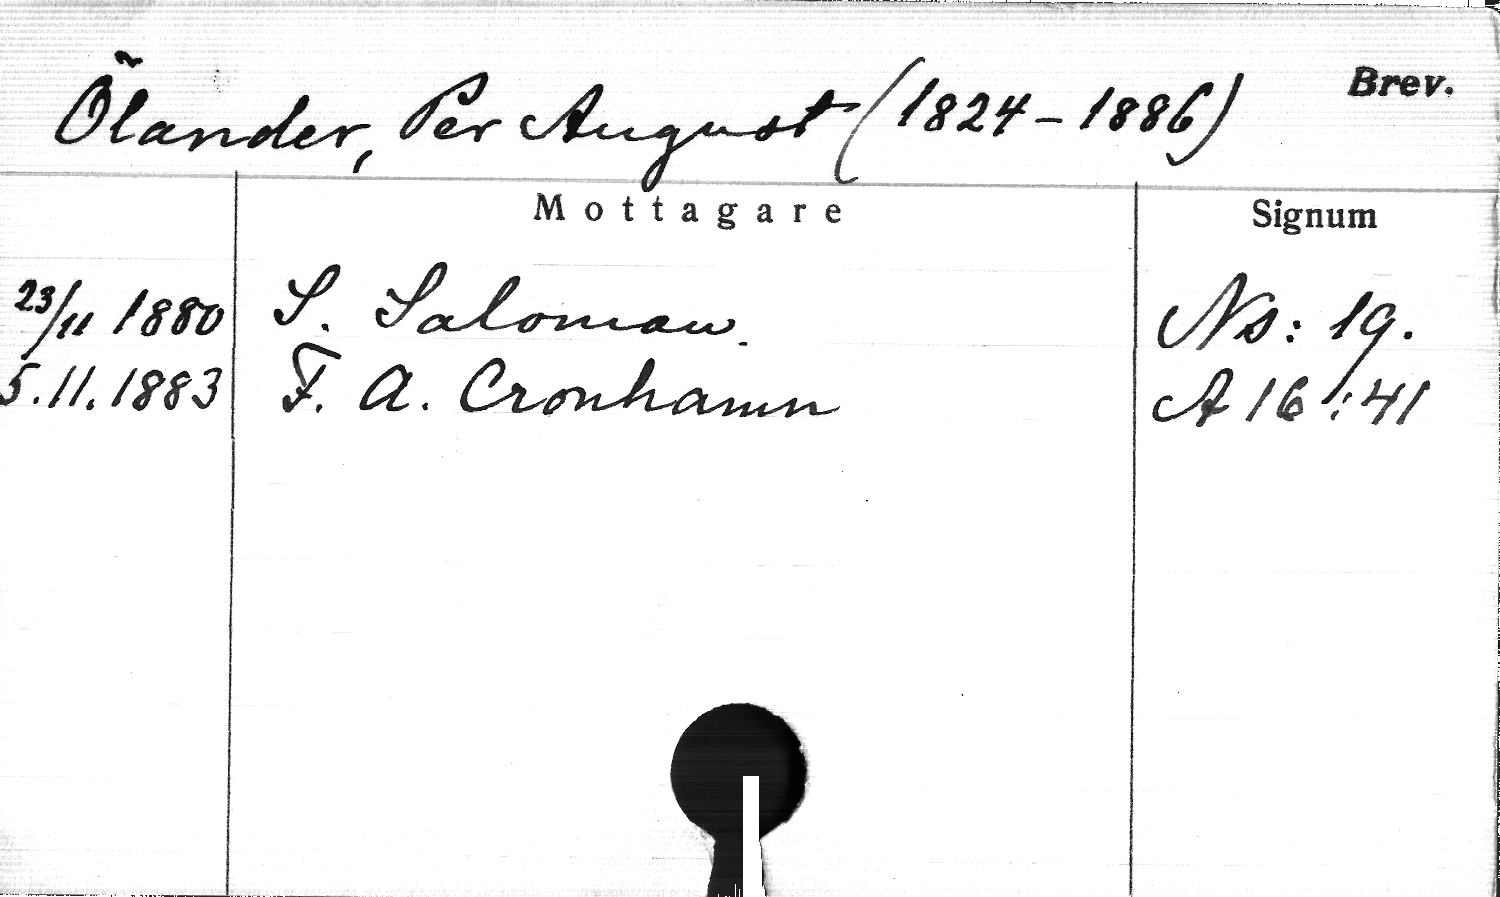 Ölander, Per August (1824–1886) Brev.
Mottagare Signum
23/11 1880 S. Saloman. Ns: 19.
5.11.1883 F. A. Cronhamn A 16:41